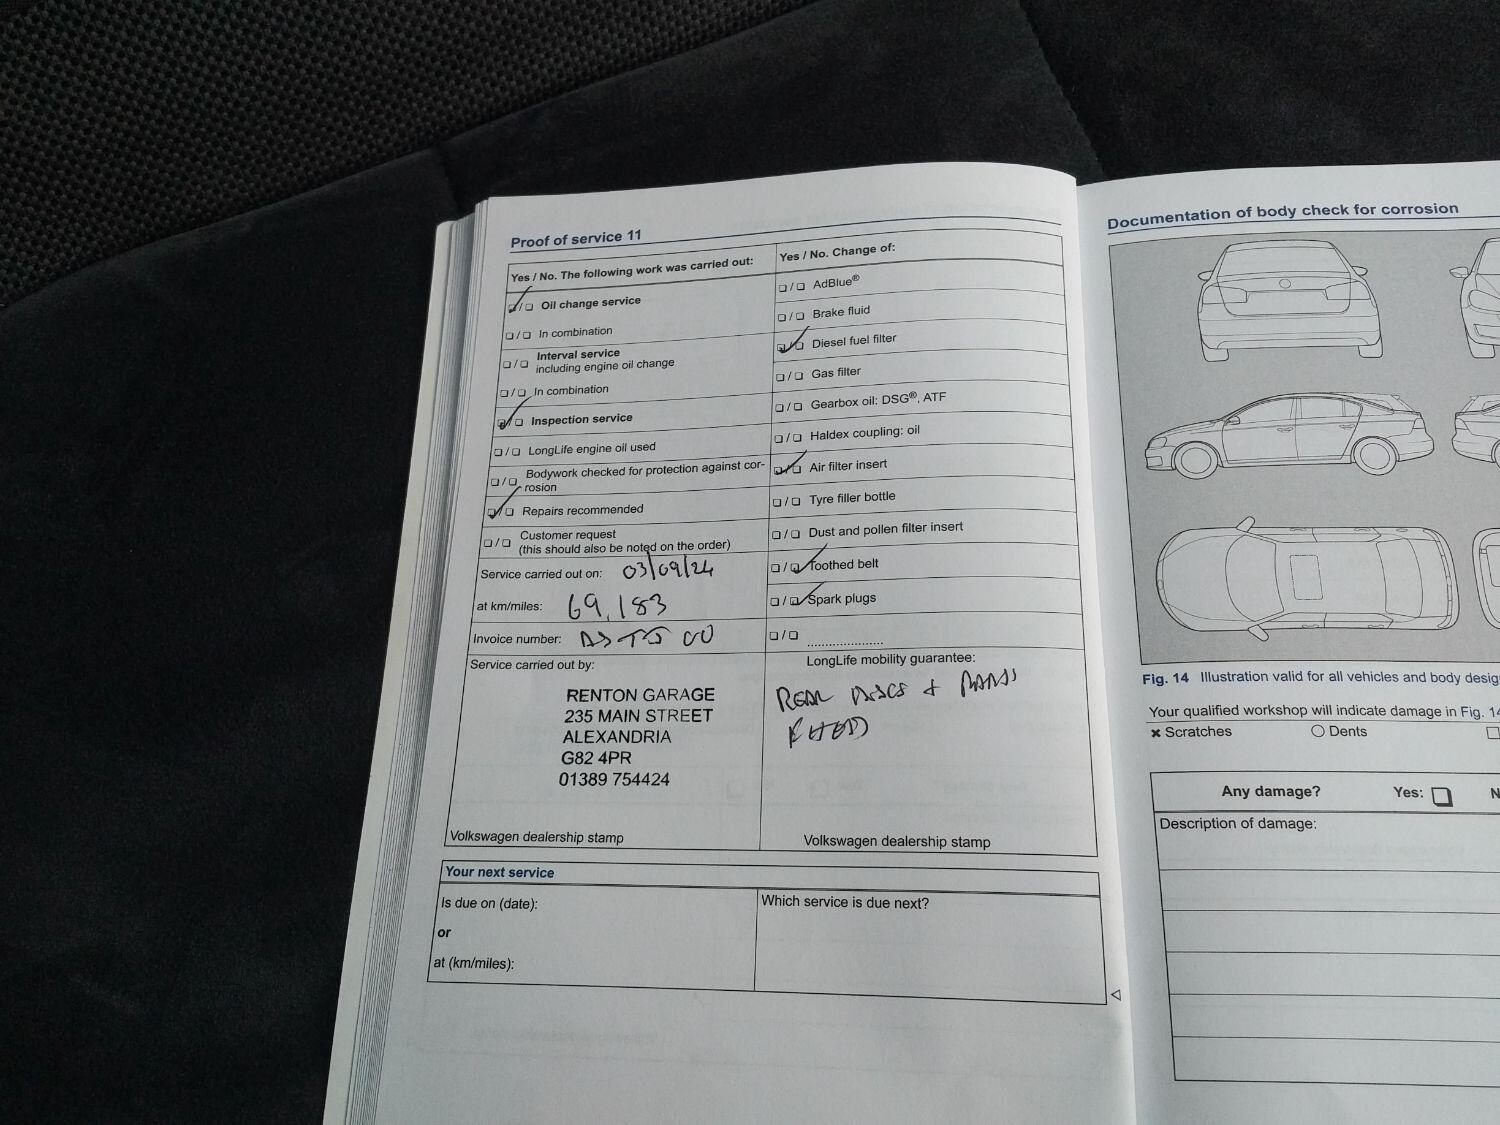 Proof of service 11
Yes / No. The following work was carried out:
Oil change service
In combination
Interval service
including engine oil change
In combination
Inspection service
LongLife engine oil used
Bodywork checked for protection against cor-
rosion
Repairs recommended
Customer request
(this should also be noted on the order)
Service carried out on: 03/09/24
at km/miles: 69,183
Invoice number:
Service carried out by:
RENTON GARAGE
235 MAIN STREET
ALEXANDRIA
G82 4PR
01389 754424
Volkswagen dealership stamp
Yes / No. Change of:
AdBlue®
Brake fluid
Diesel fuel filter
Gas filter
Gearbox oil: DSG®, ATF
Haldex coupling: oil
Air filter insert
Tyre filler bottle
Dust and pollen filter insert
Toothed belt
Spark plugs
....................
LongLife mobility guarantee:
REAR DISCS + PADS
Volkswagen dealership stamp
Your next service
Is due on (date):
or
at (km/miles):
Which service is due next?
Documentation of body check for corrosion
Fig. 14 Illustration valid for all vehicles and body desig
Your qualified workshop will indicate damage in Fig. 14
Scratches
Dents
Any damage? Yes: N
Description of damage: